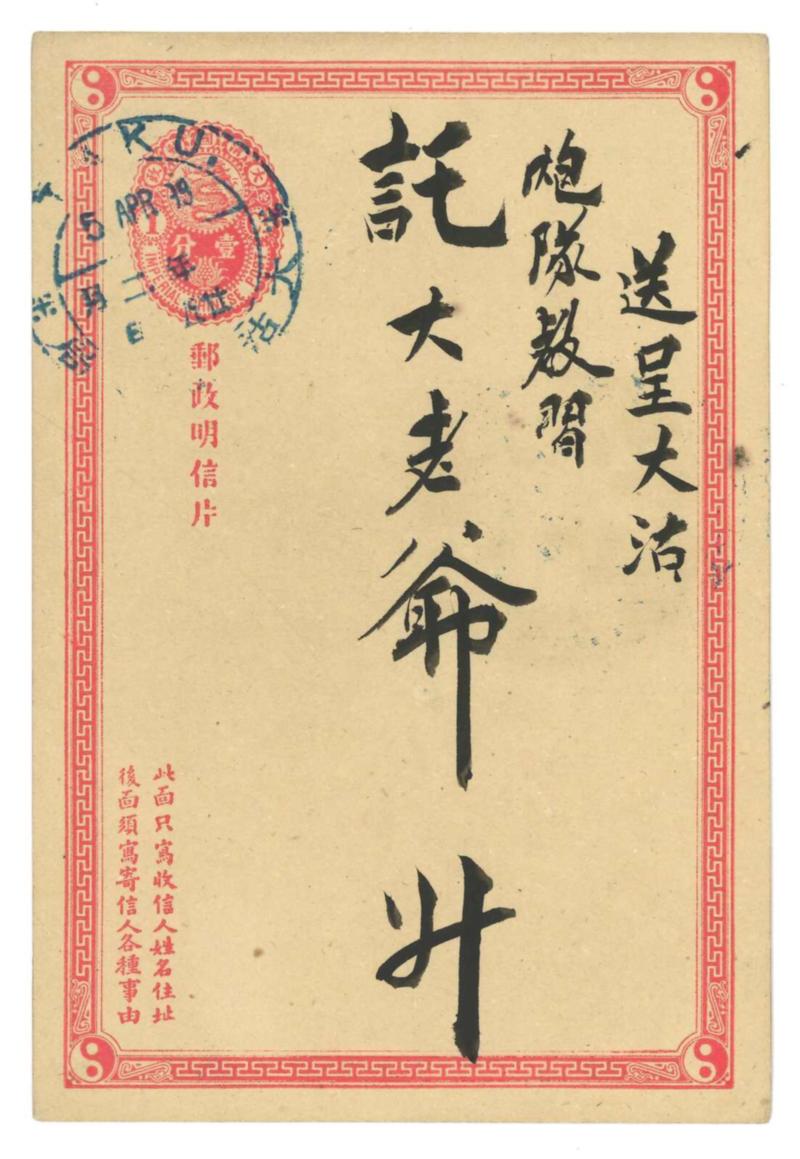 送呈大沽
炮隊教習
託大老爺升
郵政明信片
此面只寫收信人姓名住址
後面須寫寄信人各種事由
壹分
1
TAKU.
5 APR 99
大沽